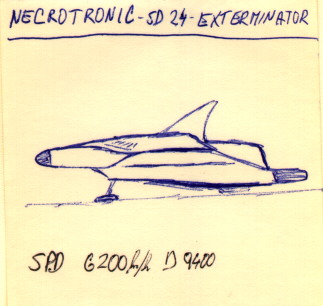 NECROTRONIC-SD 24-EXTERMINATOR
SPD 6200 h/h D 9400